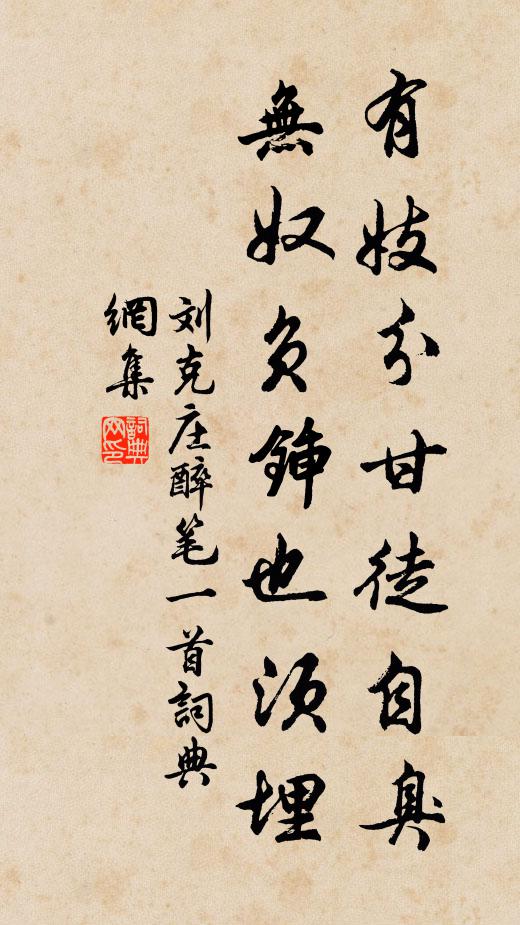 有妓分甘徒自臭
無奴負鍤也須埋
刘克庄醉笔一首詞典
網集
詞典
网印